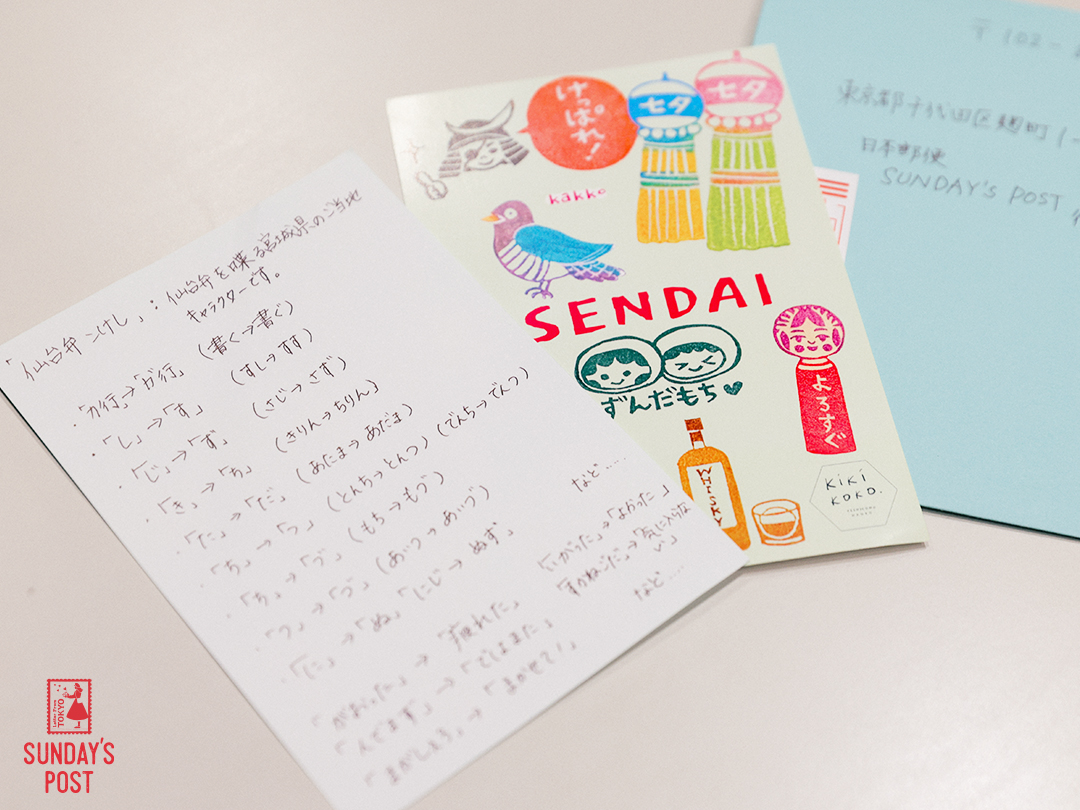 「仙台弁こけし」：仙台弁を喋る宮城県のご当地
キャラクターです。
・「カ行」→「ガ行」（書く→書ぐ）
・「し」→「す」（すし→すす）
・「じ」→「ず」（さじ→さず）
・「き」→「ち」（きりん→ちりん）
・「た」→「だ」（あたま→あだま）
・「ち」→「つ」（とんち→とんつ）（でんち→でんつ）
・「ち」→「づ」（もち→もづ）
・「つ」→「づ」（あいつ→あいづ）
・「に」→「ぬ」「にじ→ぬず」
など……
「がおった」→「疲れた」
「んでまず」→「でしょまた」
「まがしょろ」→「まがせて！」
「いがった」→「よかった」
「すかねごだ」→「気に入らない」
など……
けっぱれ！
七夕
七夕
kakko
SENDAI
ずんだもち
よろすぐ
WHISKY
KIKI
KOKO.
〒102-
東京都千代田区麹町1-
日本郵便
SUNDAY's POST
Letter from
TOKYO
SUNDAY'S
POST